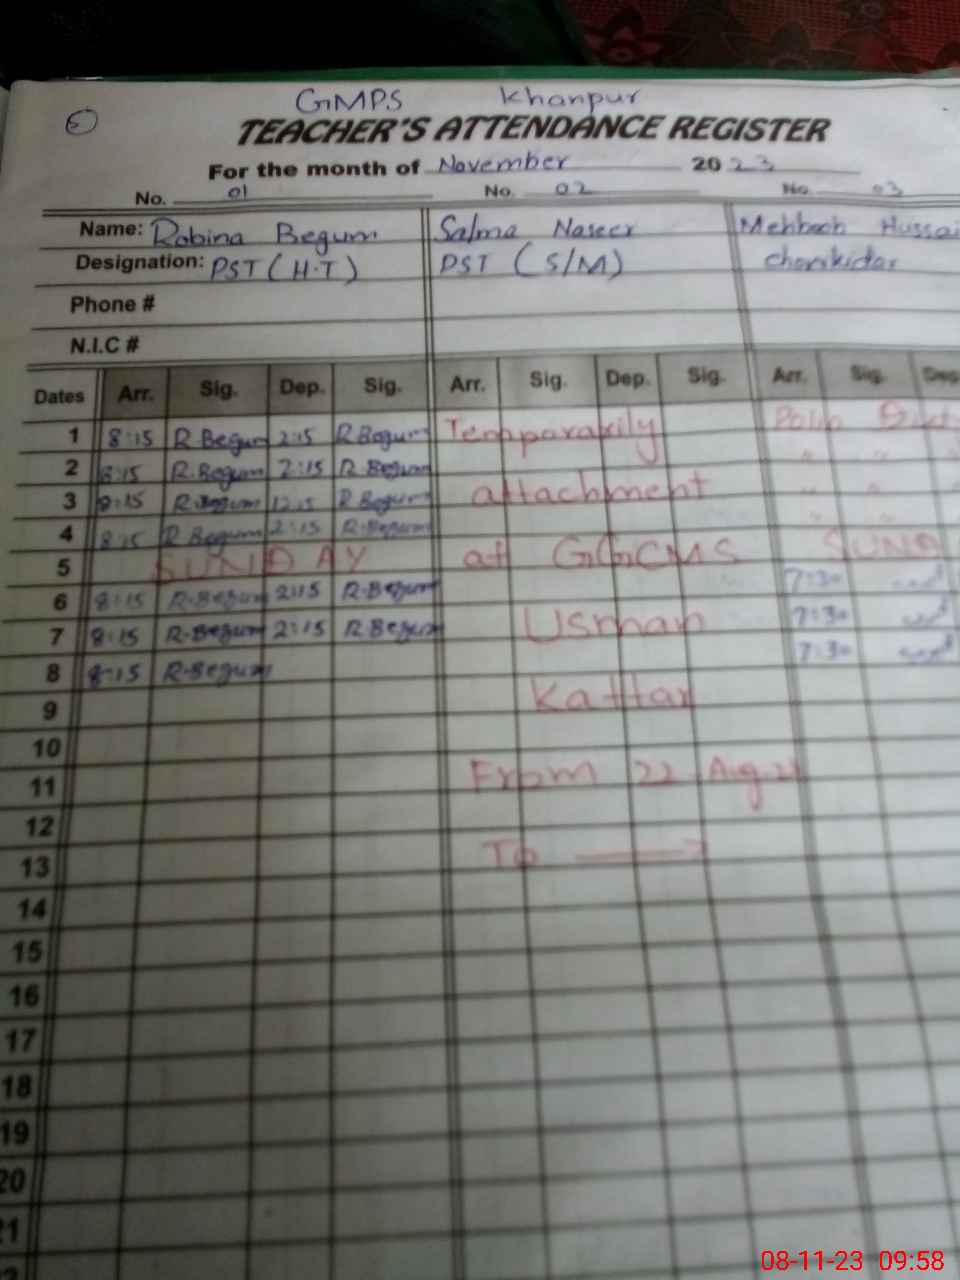 GMPS Khanpur
TEACHER'S ATTENDANCE REGISTER
For the month of November 2023
No. 01 No. 02 No. 03
Name: Robina Begum Salma Naseer Mehboob Hussai
Designation: PST (H.T) PST (S/M) chowkidar
Phone #
N.I.C #
Dates Arr. Sig. Dep. Sig. Arr. Sig. Dep. Sig. Arr. Sig. Dep.
1 8:15 R Begum 2:15 R Begum Temporarily
2 8:15 R.Begum 2:15 R.Begum " "
3 8:15 R.Begum 12:15 R Begum attachment " "
4 8:15 R Begum 2:15 R.Begum " "
5 SUNDAY at GGCMS SUND
6 8:15 R.Begum 2:15 R.Begum 7:30
7 8:15 R.Begum 2:15 R Begum Usman 7:30
8 8:15 R.Begum 7:30
9 Kattar
10
11 From 22 Aug.
12
13 To
14
15
16
17
18
19
20
21
08-11-23 09:58